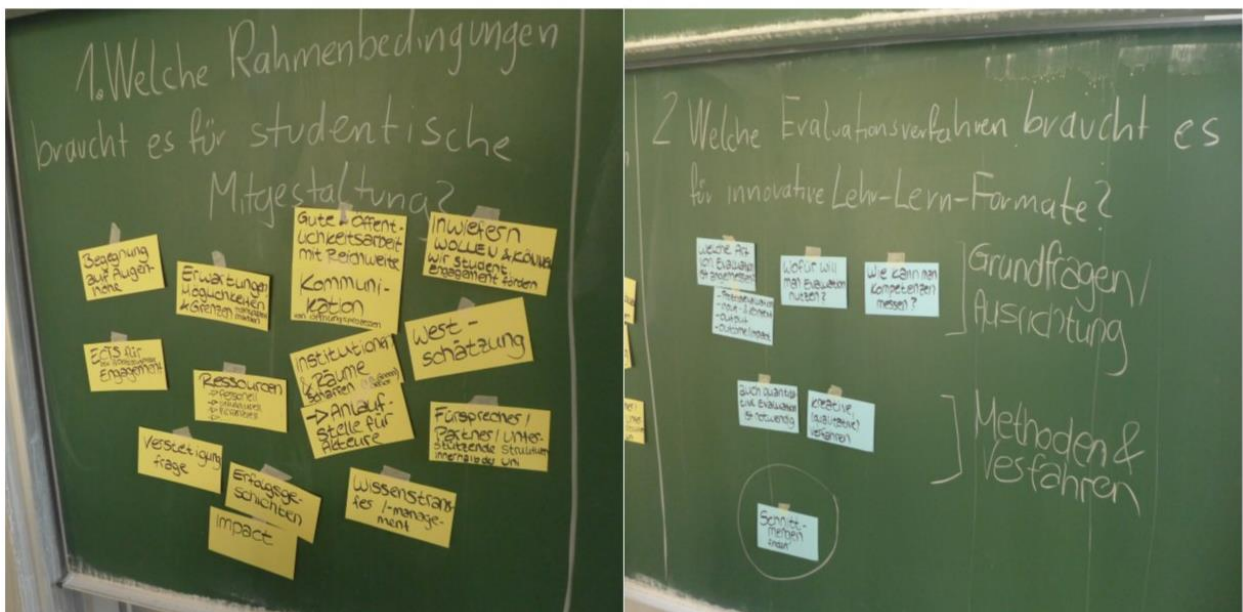 1. Welche Rahmenbedingungen
braucht es für studentische
Mitgestaltung?
Begegnung
auf Augen-
höhe
Erwartungen
Möglichkeiten
& Grenzen
machen
Gute Öffent-
lichkeitsarbeit
mit Reichweite
Kommuni-
kation
Inwiefern
WOLLEN & KÖNNEN
wir student.
engagement fördern
ECTS für
Engagement
Ressourcen
→ personell
→
→ finanziell
Institutionen
& Räume
schaffen
→ Anlauf-
stelle für
Akteure
Wert-
schätzung
Fürsprecher/
Partner/unter-
stützende Strukturen
innerhalb der Uni
Verstetigungs
frage
Erfolgsge-
schichten
Impact
Wissenstrans-
fer/-manage-
ment
2 Welche Evaluationsverfahren braucht es
für innovative Lehr-Lern-Formate?
Welche Art
von Evaluation
ist angemessen?
-
-
- output
- outcome/impact
Wofür will
man Evaluation
nutzen?
Wie kann man
Kompetenzen
messen?
Grundfragen/
Ausrichtung
auch quantita-
tive Evaluation
ist notwendig
kreative,
(qualitative)
Verfahren
Methoden &
Verfahren
Schnitt-
mengen
finden!